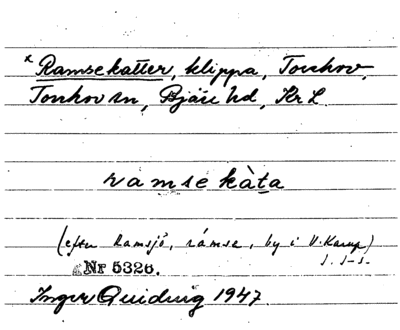 x Ramsekatter, klippa, Torekov,
Torekov sn, Bjäre hd, Kr L.
ramsekàta
(efter Ramsjö, rámse, by i V. Karup)
J. J-s.
Nr 5326.
Inger Quiding 1947.